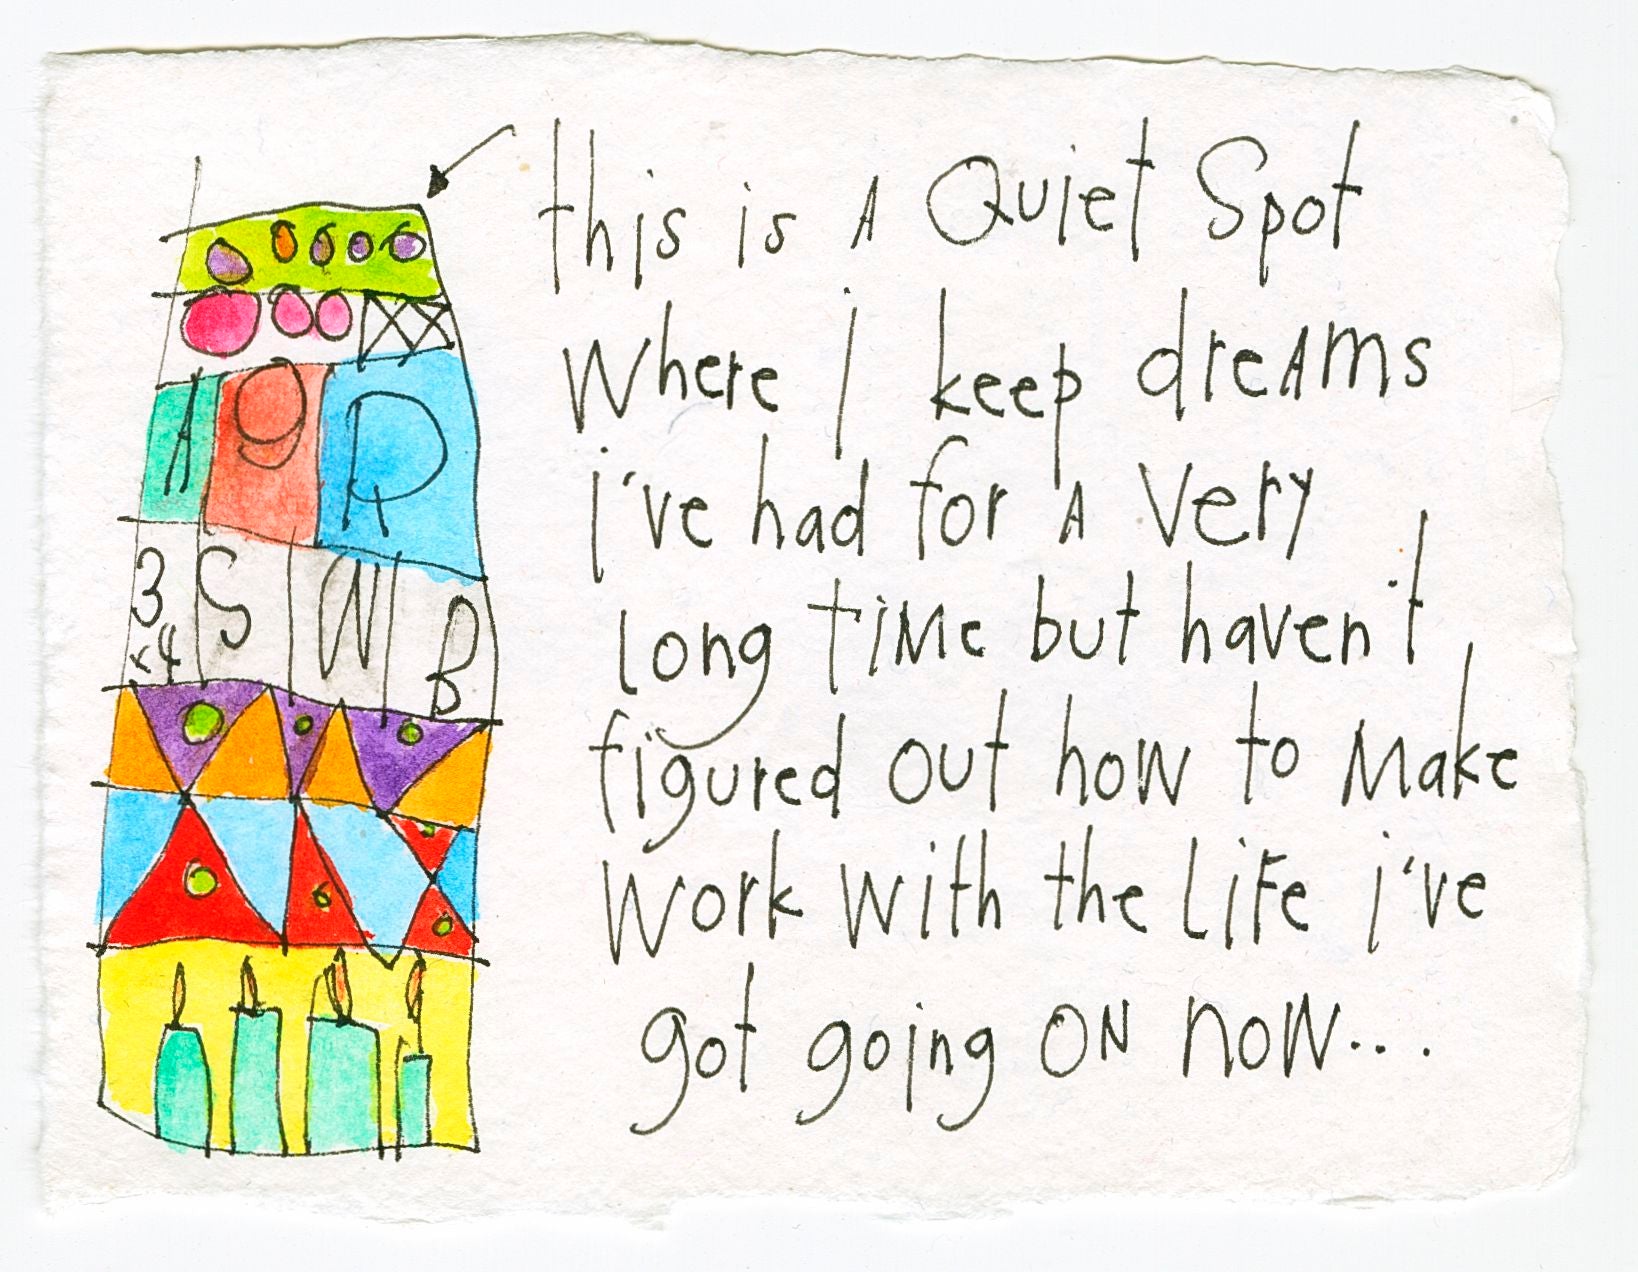 this is A Quiet Spot
Where I keep dreAms
i've had for A Very
long TiMe but haven't
figured out how to Make
Work With the LiFe i've
got going ON NoW...
A 9 R
3 S N B
x4